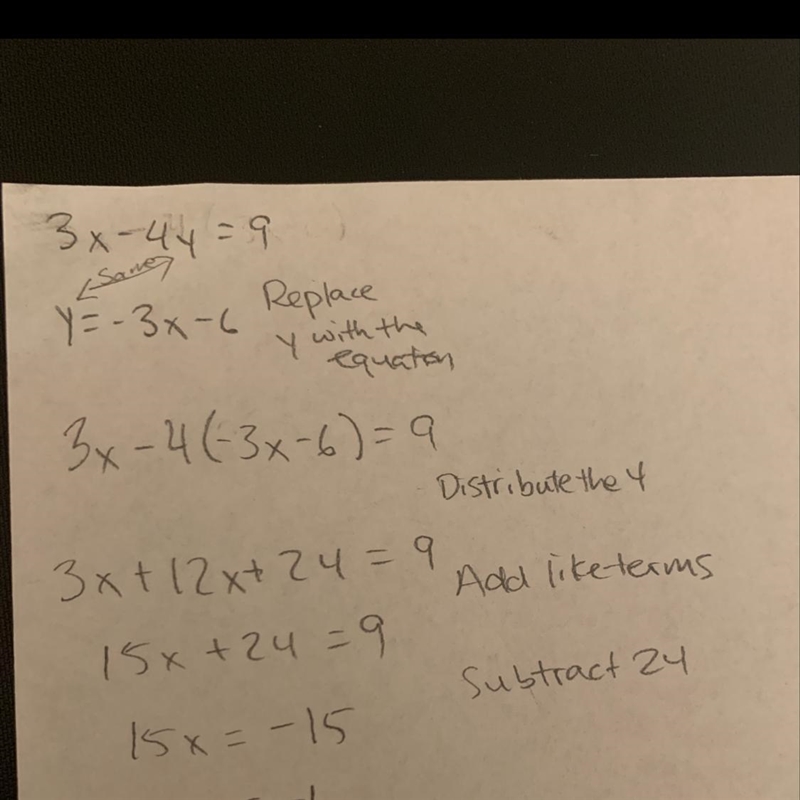 3x - 4y = 9
Same
y = -3x - 6
Replace
y with the
equation
3x - 4(-3x - 6) = 9
Distribute the 4
3x + 12x + 24 = 9
Add like terms
15x + 24 = 9
Subtract 24
15x = -15